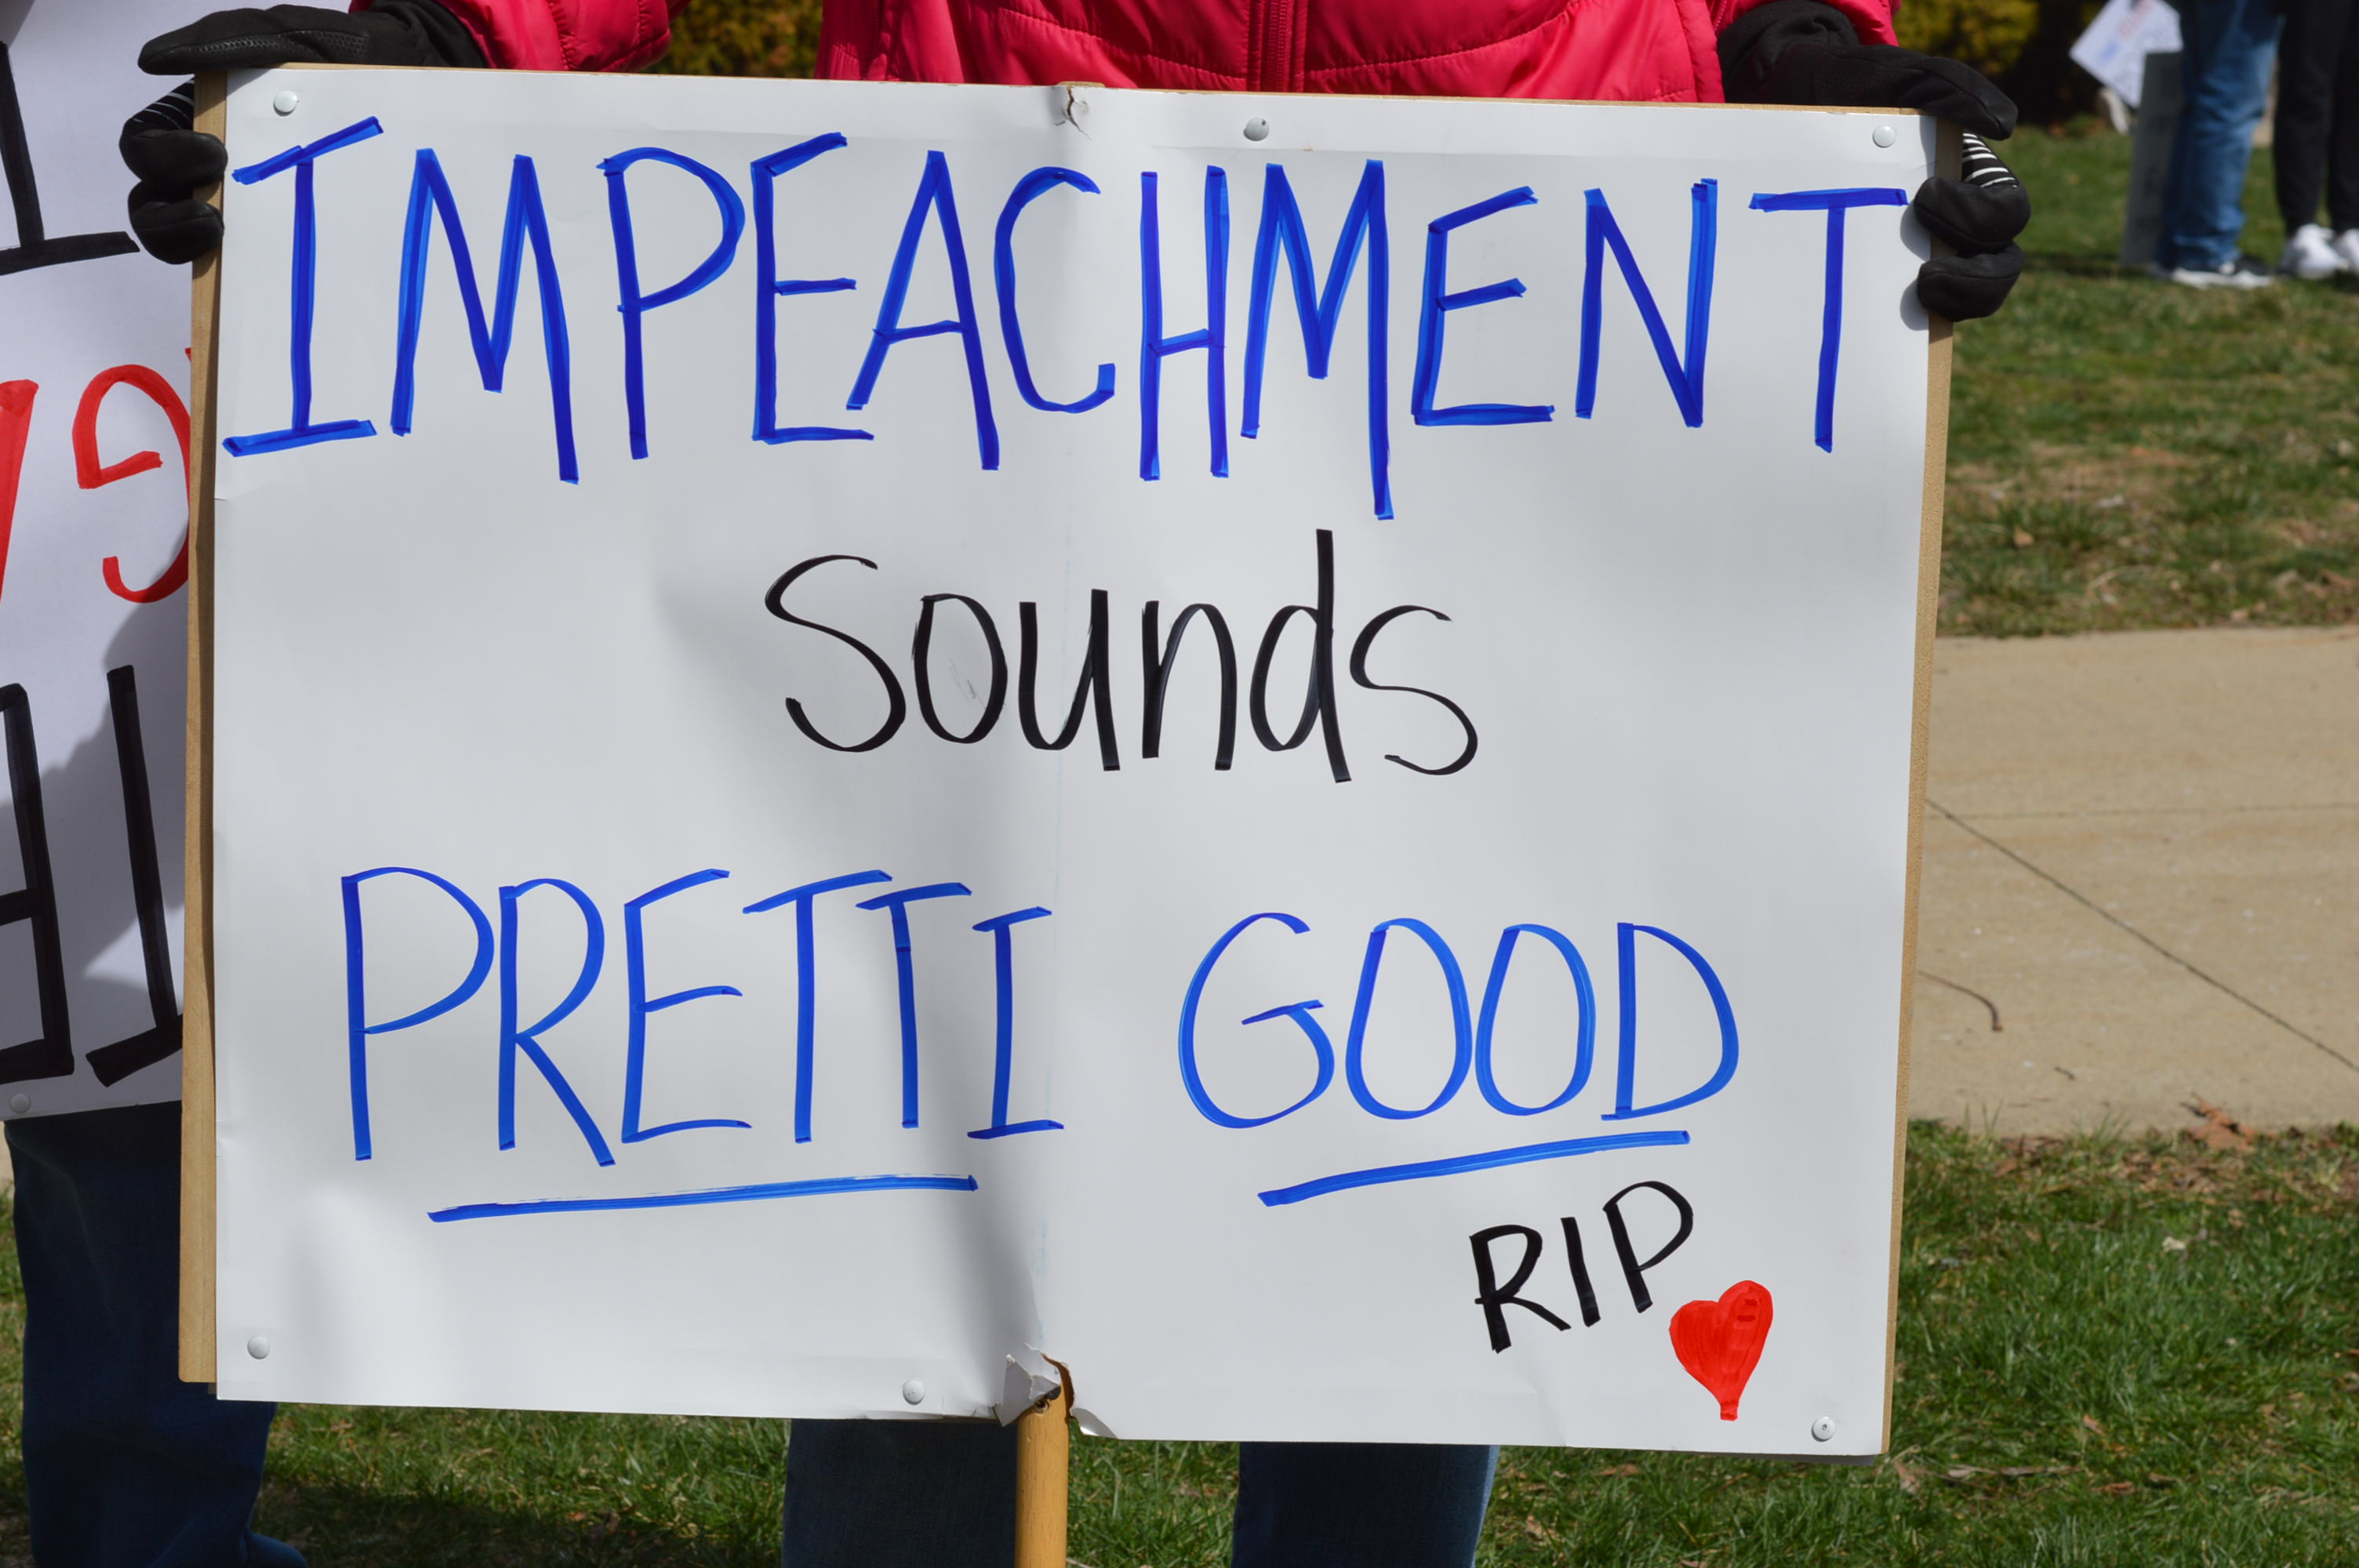 IMPEACHMENT
Sounds
PRETTI GOOD
RIP